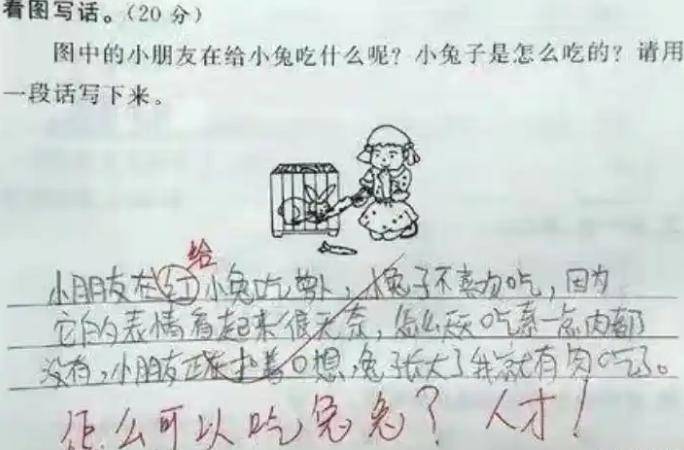 看图写话。(20 分)
图中的小朋友在给小兔吃什么呢？小兔子是怎么吃的？请用
一段话写下来。
给
小朋友在红小兔吃萝卜，小兔子不喜欢吃，因为
它的表情看起来很无奈，怎么天天吃素一点肉都
没有，小朋友正在想，兔子长大了我就有肉吃了。
怎么可以吃兔兔？人才！